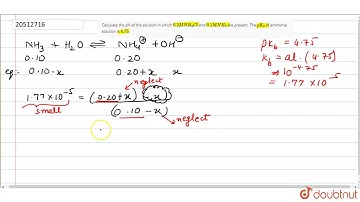 20512716
Calculate the pH of the solution in which 0.2M NH₄Cl and 0.1M NH₃ are present. The pKb of ammonia
solution is 4.75.
NH₃ + H₂O ⇌ NH₄⊕ + OH⊖
0.10 0.20
eq: 0.10-x 0.20+x x
pKb = 4.75
Kb = al. (4.75)
⇒ 10^-4.75
= 1.77 × 10^-5
neglect
1.77 × 10^-5 = (0.20+x) x
small (0.10-x)
neglect
doubtnut